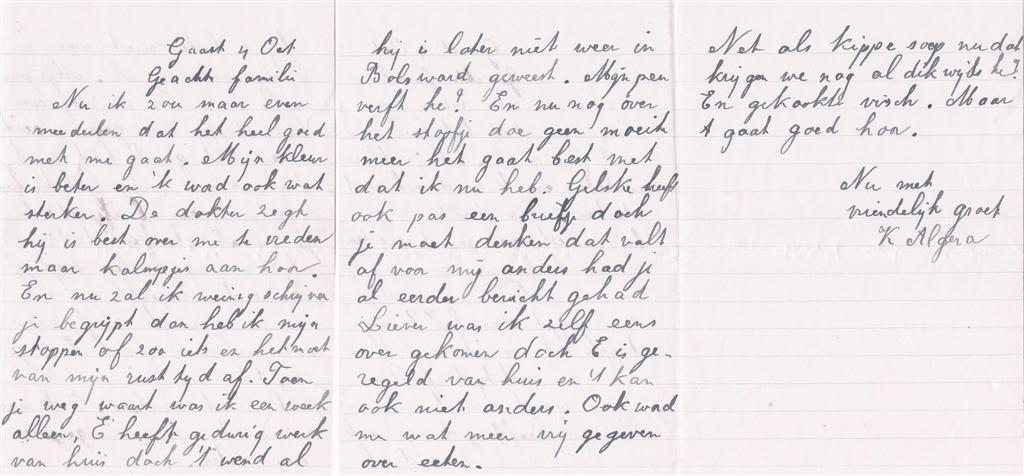 Gaast 4 Oct
Geachte famili
Nu ik zou maar even
meedeelen dat het heel goed
met me gaat. Mijn kleur
is beter en 'k word ook wat
sterker. De dokter zegt
hij is best over me te vreden
maar kalmpjes aan hoor.
En nu zal ik weinig schrijven
je begrijpt dan heb ik mijn
stoppen of zoo iets en het moet
van mijn rust tyd af. Toen
je weg waart was ik een week
alleen, E heeft gedurig werk
van huis doch 't wend al
hij is later niet weer in
Bolsward geweest. Mijn pen
verft he? En nu nog over
het stopfje doe geen moeite
meer het gaat best met
dat ik nu heb. Gelske heeft
ook pas een briefje doch
je moet denken dat valt
af voor mij anders had je
al eerder bericht gehad
Liever was ik zelf eens
over gekomen doch E is ge-
regeld van huis en 't kan
ook niet anders. Ook word
me wat meer vrij gegeven
over eeten.
Net als kippe soep nu dat
krijgen we nog al dikwijls he?
En gekookte visch. Maar
t gaat goed hoor.
Nu met
vriendelijk groet
K Algera